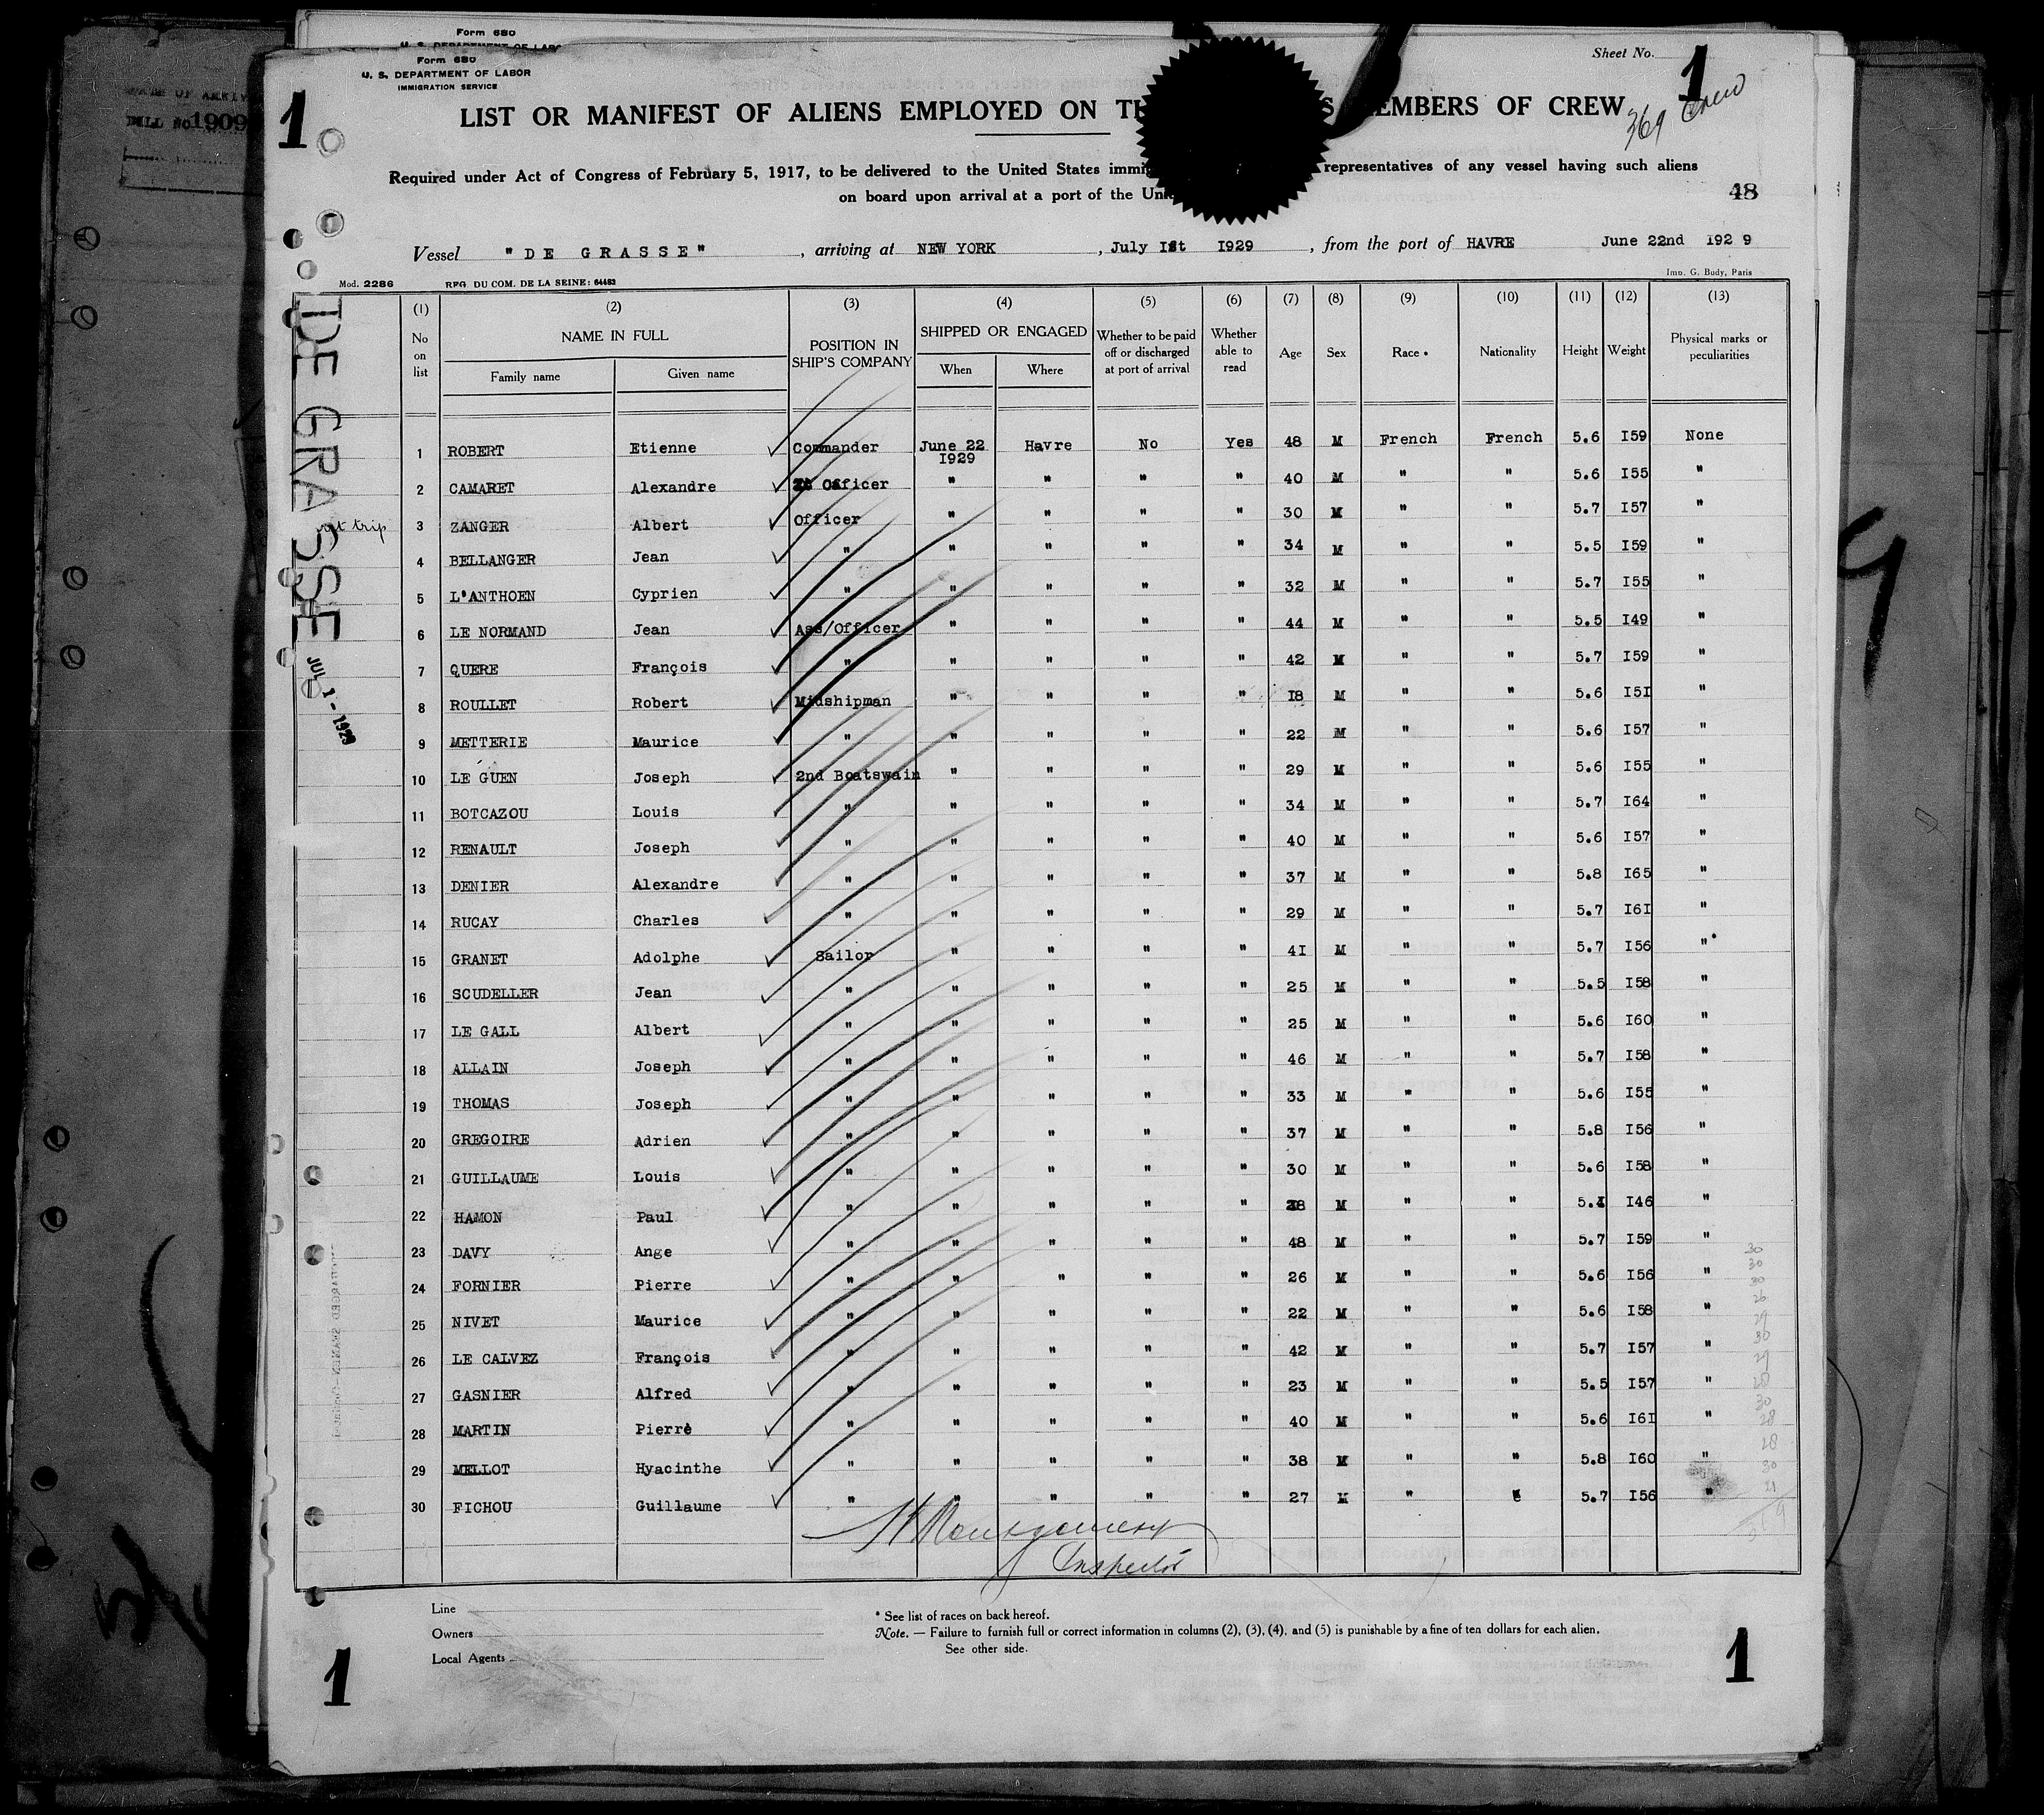 Form 680
Form 680
U. S. DEPARTMENT OF LABOR
IMMIGRATION SERVICE
Sheet No. 1
1
369 Crew
LIST OR MANIFEST OF ALIENS EMPLOYED ON MEMBERS OF CREW
Required under Act of Congress of February 5, 1917, to be delivered to the United States representatives of any vessel having such aliens
on board upon arrival at a port of the
48
Vessel "DE GRASSE", arriving at NEW YORK, July 1st 1929, from the port of HAVRE June 22nd 1929
Mod. 2286 REG. DU COM. DE LA SEINE: 64483 Imp. G. Budy, Paris
(1) (2) (3) (4) (5) (6) (7) (8) (9) (10) (11) (12) (13)
No on list NAME IN FULL Family name Given name POSITION IN SHIP'S COMPANY SHIPPED OR ENGAGED When Where Whether to be paid off or discharged at port of arrival Whether able to read Age Sex Race * Nationality Height Weight Physical marks or peculiarities
1 ROBERT Etienne Commander June 22 1929 Havre No Yes 48 M French French 5.6 I59 None
2 CAMARET Alexandre Officer " " " " 40 M " " 5.6 I55 "
3 ZANGER Albert Officer " " " " 30 M " " 5.7 I57 "
4 BELLANGER Jean " " " " " 34 M " " 5.5 I59 "
5 L'ANTHOEN Cyprien " " " " " 32 M " " 5.7 I55 "
6 LE NORMAND Jean Ass/Officer " " " " 44 M " " 5.5 I49 "
7 QUERE François " " " " " 42 M " " 5.7 I59 "
8 ROULLET Robert Midshipman " " " " I8 M " " 5.6 I5I "
9 METTERIE Maurice " " " " " 22 M " " 5.6 I57 "
10 LE GUEN Joseph 2nd Boatswain " " " " 29 M " " 5.6 I55 "
11 BOTCAZOU Louis " " " " " 34 M " " 5.7 I64 "
12 RENAULT Joseph " " " " " 40 M " " 5.6 I57 "
13 DENIER Alexandre " " " " " 37 M " " 5.8 I65 "
14 RUCAY Charles " " " " " 29 M " " 5.7 I6I "
15 GRANET Adolphe Sailor " " " " 4I M " " 5.7 I56 "
16 SCUDELLER Jean " " " " " 25 M " " 5.5 I58 "
17 LE GALL Albert " " " " " 25 M " " 5.6 I60 "
18 ALLAIN Joseph " " " " " 46 M " " 5.7 I58 "
19 THOMAS Joseph " " " " " 33 M " " 5.6 I55 "
20 GREGOIRE Adrien " " " " " 37 M " " 5.8 I56 "
21 GUILLAUME Louis " " " " " 30 M " " 5.6 I58 "
22 HAMON Paul " " " " " M " " I46 "
23 DAVY Ange " " " " " 48 M " " 5.7 I59 "
24 FORNIER Pierre " " " " " 26 M " " 5.6 I56 "
25 NIVET Maurice " " " " " 22 M " " 5.6 I58 "
26 LE CALVEZ François " " " " " 42 M " " 5.7 I57 "
27 GASNIER Alfred " " " " " 23 M " " 5.5 I57 "
28 MARTIN Pierre " " " " " 40 M " " 5.6 I6I "
29 MELLOT Hyacinthe " " " " " 38 M " " 5.8 I60 "
30 FICHOU Guillaume " " " " " 27 M " " 5.7 I56 "
Montgomery
Inspector
DE GRASSE
JUL 1 - 1929
Line
Owners
Local Agents
* See list of races on back hereof.
Note. — Failure to furnish full or correct information in columns (2), (3), (4), and (5) is punishable by a fine of ten dollars for each alien.
See other side.
1
1